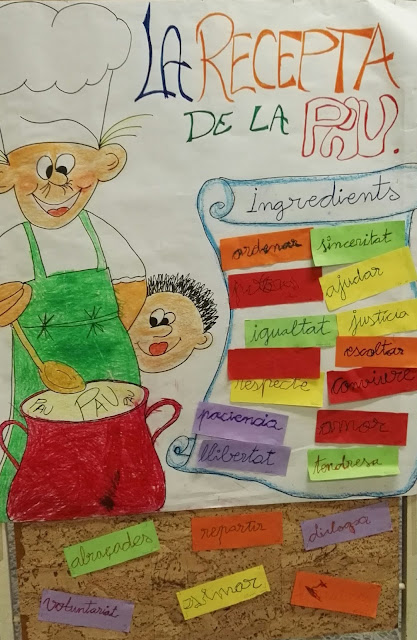 LA RECEPTA
DE LA PAU.
Ingredients
ordenar sinceritat
petons ajudar
igualtat justícia
escoltar
respecte conviure
paciencia amor
llibertat tendresa
PAU PAU
abraçades repartir dialogar
voluntariat estimar